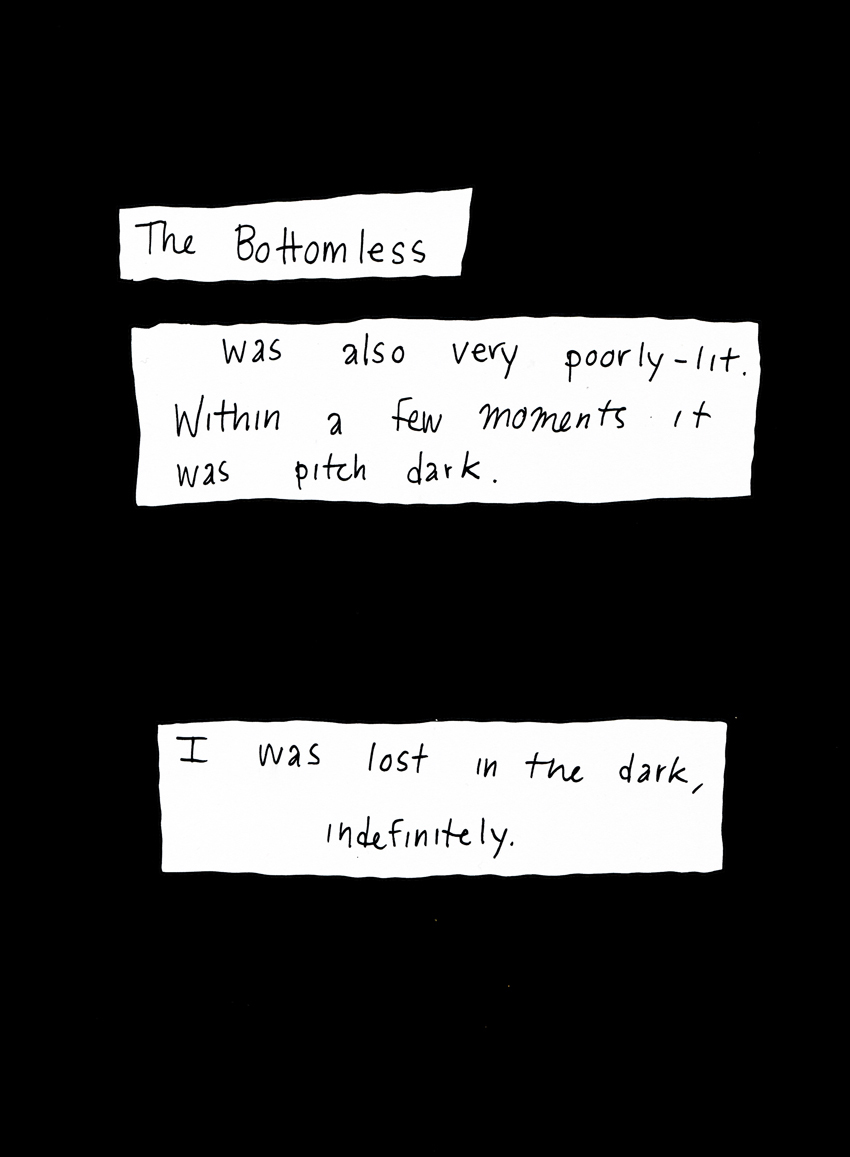 The Bottomless
was also very poorly-lit.
Within a few moments it
was pitch dark.
I was lost in the dark,
indefinitely.